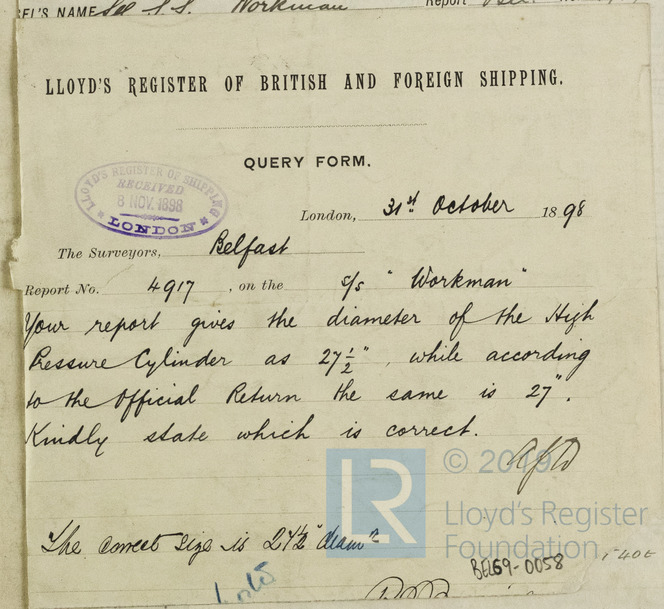 SEL'S NAME S.S. Workman Report
LLOYD'S REGISTER OF BRITISH AND FOREIGN SHIPPING.
QUERY FORM.
LLOYD'S REGISTER OF SHIPPING
RECEIVED
8 NOV. 1898
LONDON
London, 31st October 1898
The Surveyors, Belfast
Report No. 4917, on the S/S "Workman"
Your report gives the diameter of the High
Pressure Cylinder as 27½", while according
to the Official Return the same is 27".
Kindly state which is correct.
© 2019
LR
Lloyd's Register
Foundation
The correct size is 27½" diamr
BEL69-0058